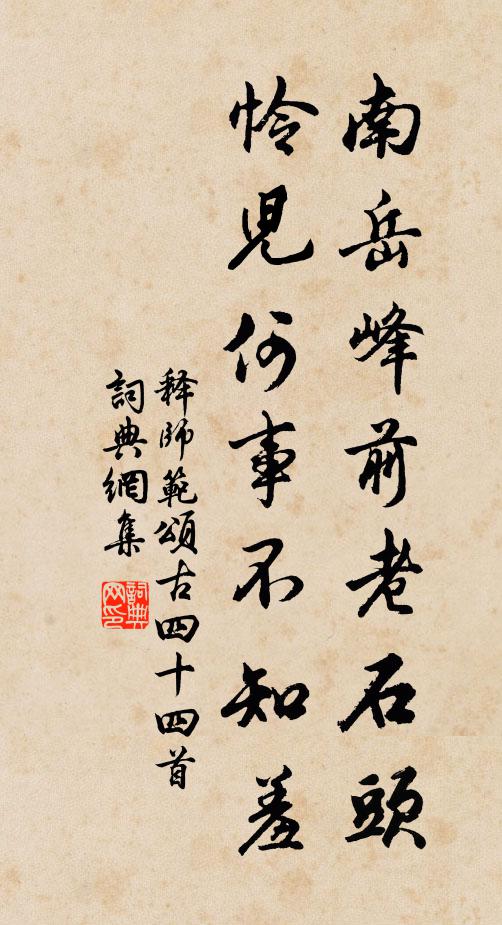 南岳峰前老石頭
怜兒何事不知羞
释師範頌古四十四首
詞典網集
詞典网印